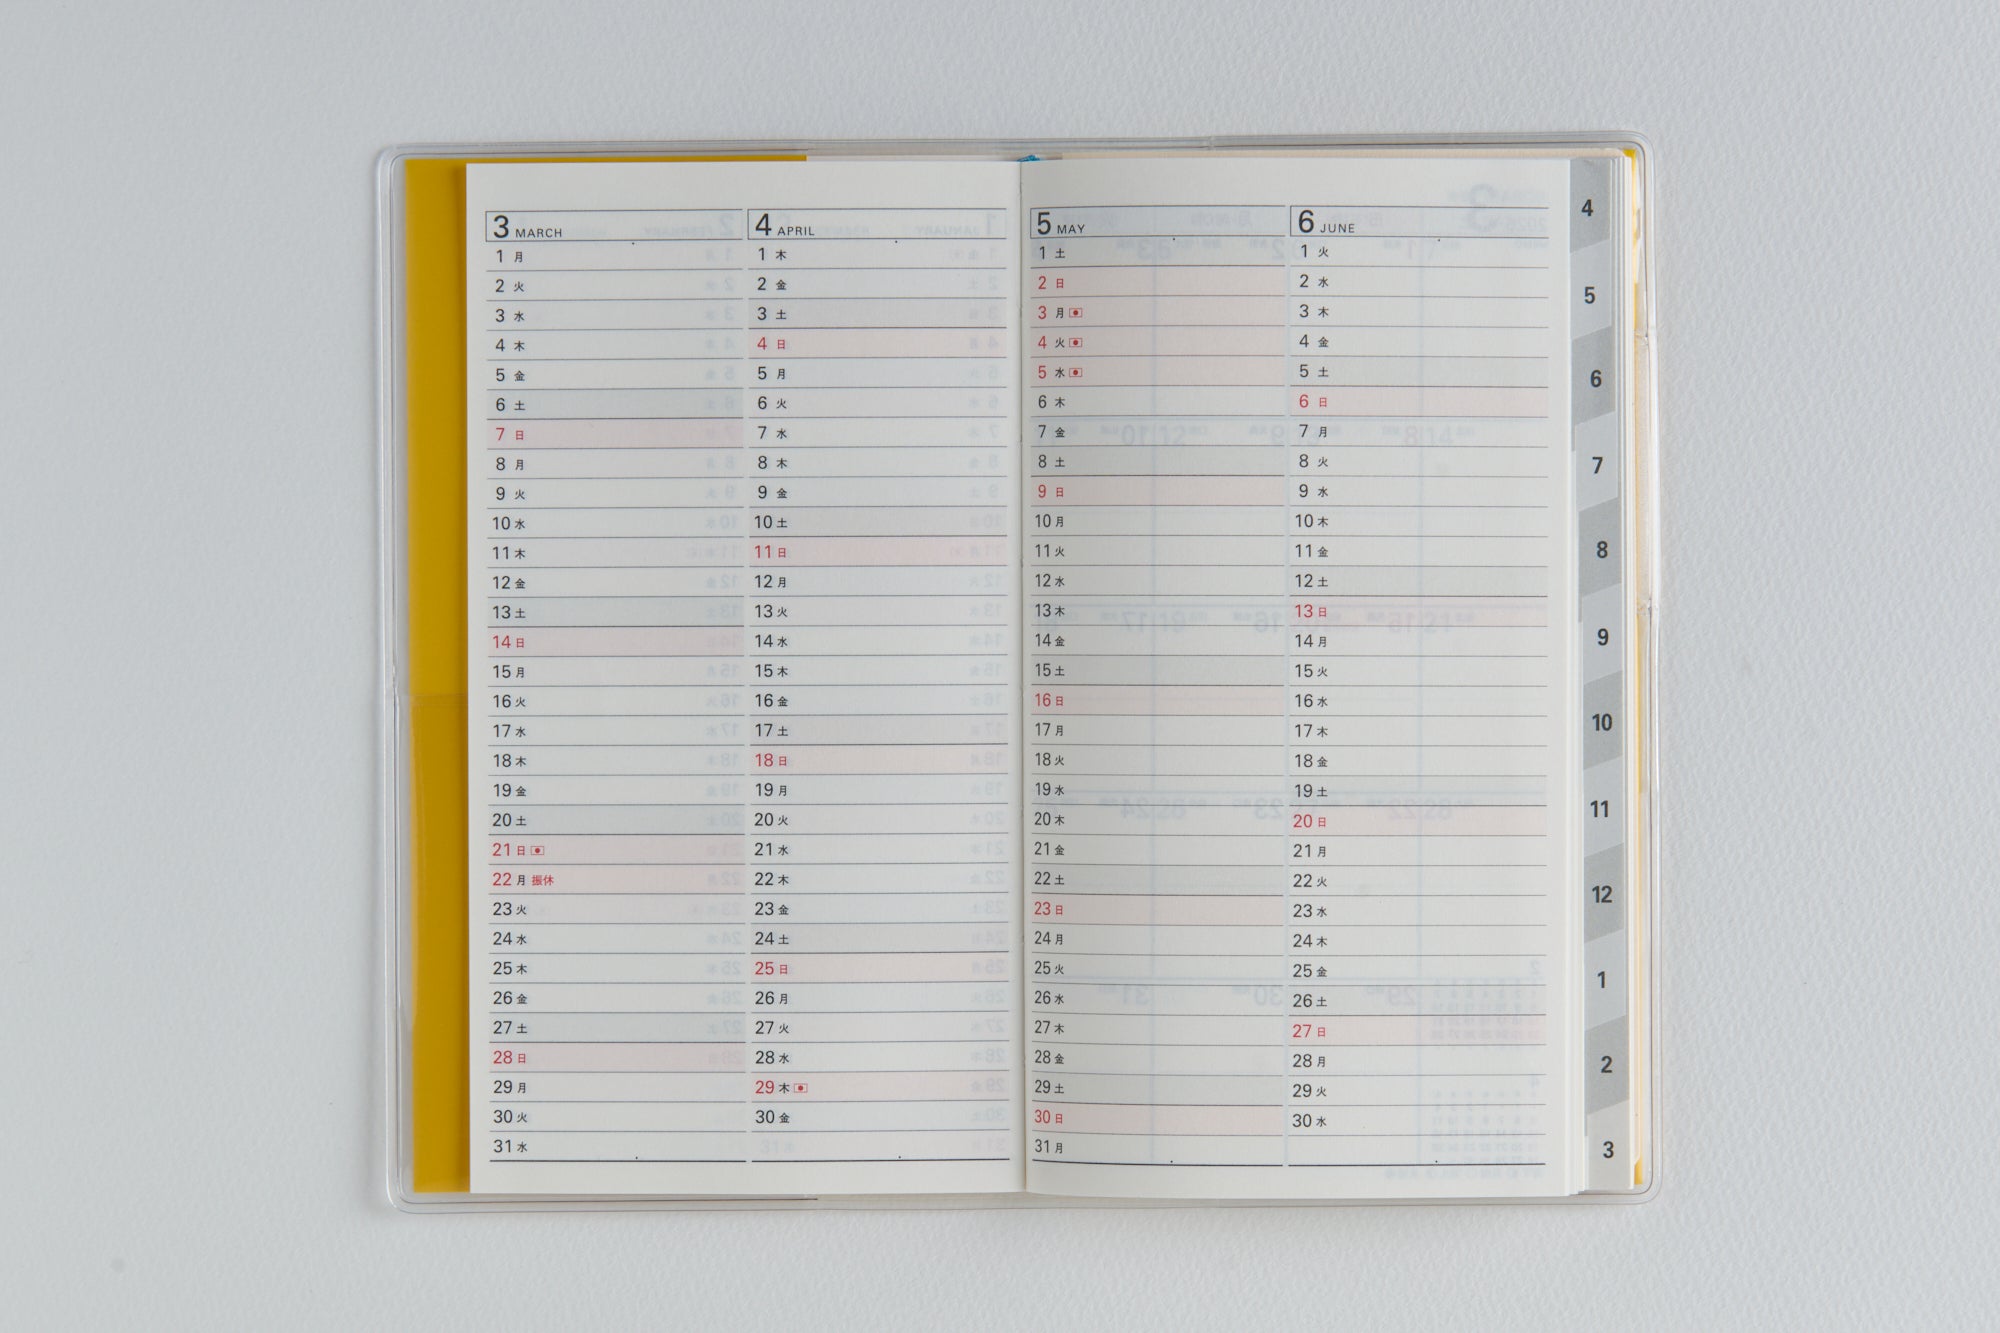 3 MARCH
1 月
2 火
3 水
4 木
5 金
6 土
7 日
8 月
9 火
10 水
11 木
12 金
13 土
14 日
15 月
16 火
17 水
18 木
19 金
20 土
21 日
22 月 振休
23 火
24 水
25 木
26 金
27 土
28 日
29 月
30 火
31 水
4 APRIL
1 木
2 金
3 土
4 日
5 月
6 火
7 水
8 木
9 金
10 土
11 日
12 月
13 火
14 水
15 木
16 金
17 土
18 日
19 月
20 火
21 水
22 木
23 金
24 土
25 日
26 月
27 火
28 水
29 木
30 金
5 MAY
1 土
2 日
3 月
4 火
5 水
6 木
7 金
8 土
9 日
10 月
11 火
12 水
13 木
14 金
15 土
16 日
17 月
18 火
19 水
20 木
21 金
22 土
23 日
24 月
25 火
26 水
27 木
28 金
29 土
30 日
31 月
6 JUNE
1 火
2 水
3 木
4 金
5 土
6 日
7 月
8 火
9 水
10 木
11 金
12 土
13 日
14 月
15 火
16 水
17 木
18 金
19 土
20 日
21 月
22 火
23 水
24 木
25 金
26 土
27 日
28 月
29 火
30 水
4
5
6
7
8
9
10
11
12
1
2
3